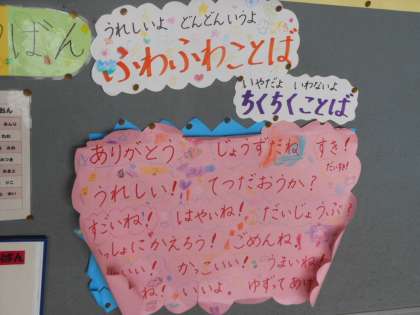 ばん
うれしいよ どんどんいうよ
ふわふわことば
いやだよ いわないよ
ちくちくことば
ありがとう じょうずだね すき!
だいすき!
うれしい! てつだおうか?
すごいね! はやいね! だいじょうぶ?
っしょにかえろう! ごめんね
いい! かっこいい! うまいね!
ね! いいよ ゆずってあげ